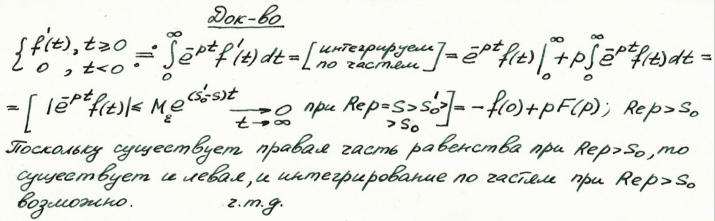 Док-во
{ f'(t), t≥0 0, t<0 ≓ ∫₀^∞ e^{-pt} f'(t) dt = [интегрируем по частям] = e^{-pt} f(t) |₀^∞ + p∫₀^∞ e^{-pt} f(t) dt =
= [ |e^{-pt} f(t)| ≤ M_ε e^{(s₀'-s)t} →_{t→∞} 0 при Rep=s>s₀'>s₀ ] = -f(0)+pF(p); Rep>s₀
Поскольку существует правая часть равенства при Rep>s₀, то
существует и левая, и интегрирование по частям при Rep>s₀
возможно. ч.т.д.